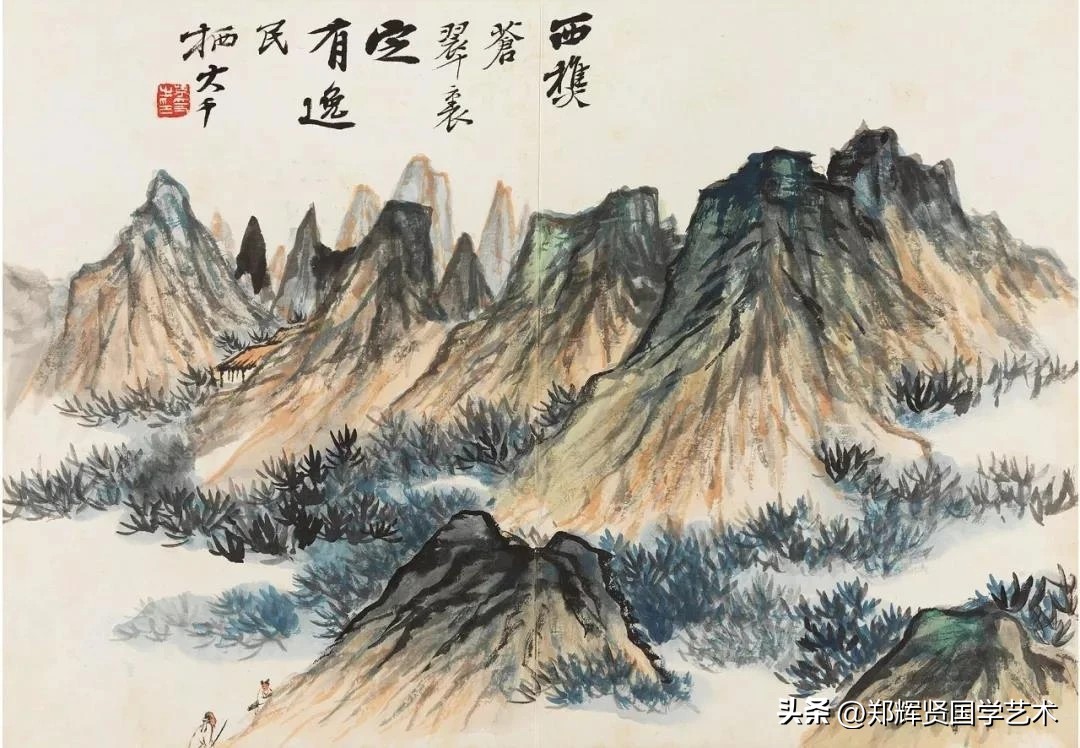 西樵
蒼
翠裏
定
有逸
民
栖大千
头条 @郑辉贤国学艺术